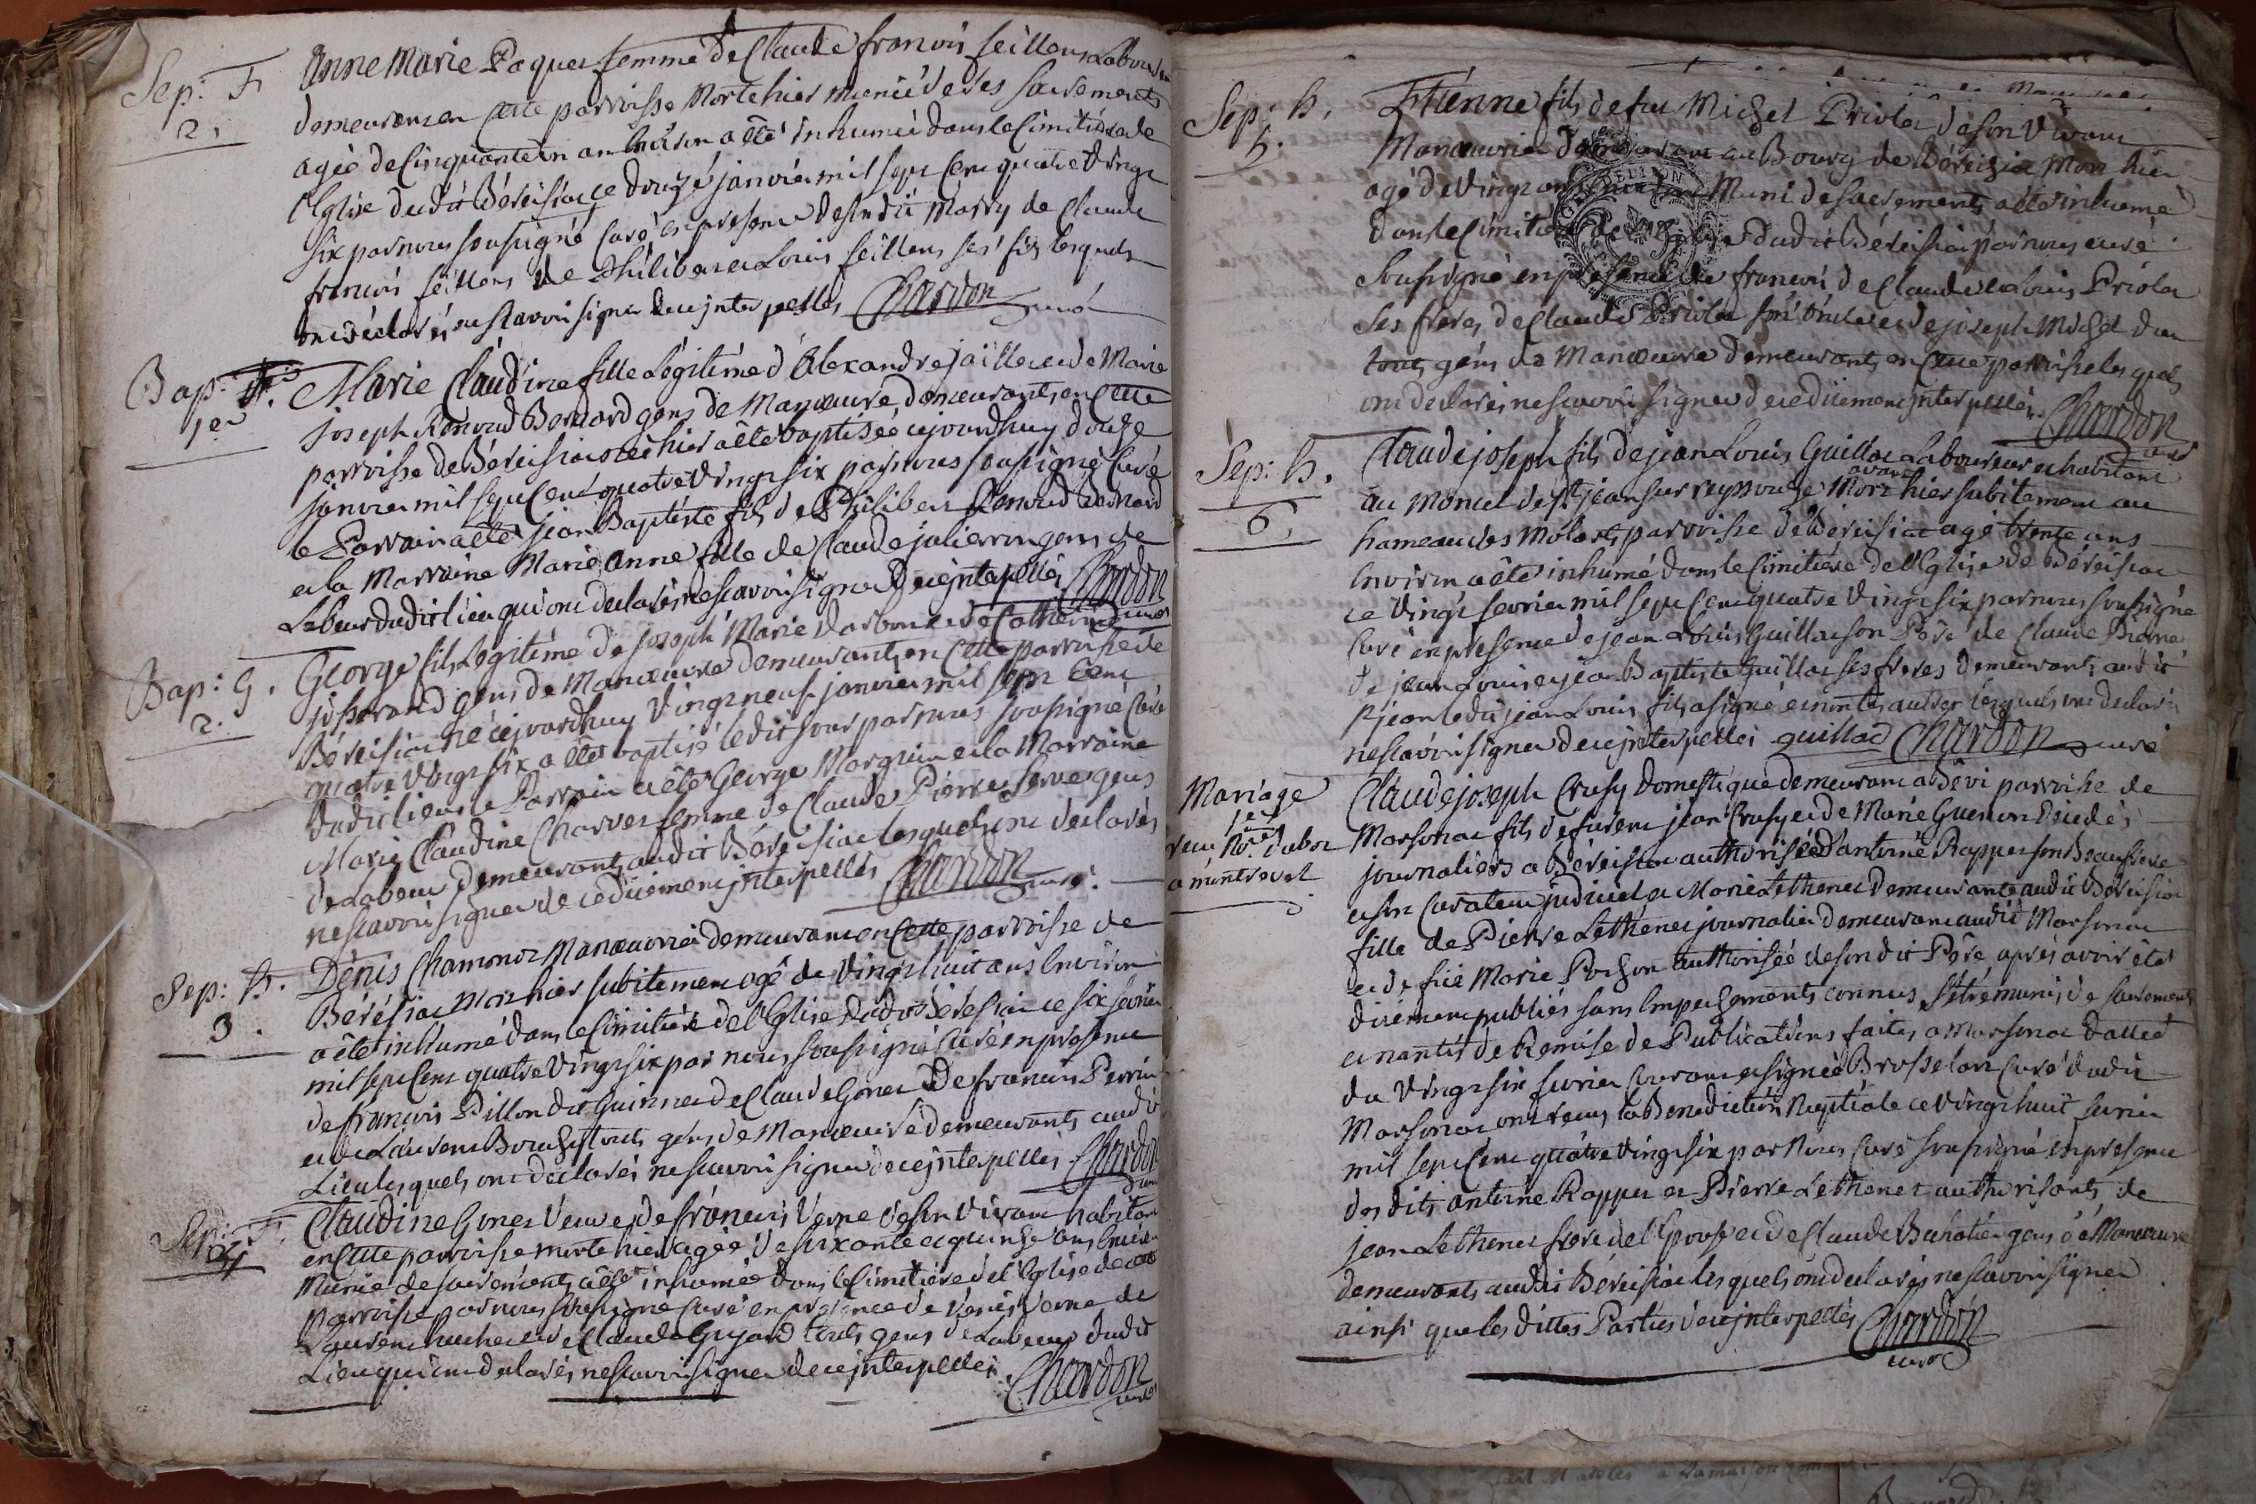 Sep: F
2.
Anne Marie Paquet femme de Claude francois seillon Laboureur
demeurant en cette parroisse Morte hier munie de ses sacrements
agée de Cinquante un an environ a été inhumée dans le Cimitière de
l'Eglise dudit Béreisiac ce douze janvier mil sept cent quatre vingt
six par nous soussigné Curé en presence de sondit Marry de Claude
francois seillons de Philibert et Louis seillons ses fils lesquels
ont déclarés ne sçavoir signer de ce jnterpellés Chardon curé
Bap: f.
1er
Marie Claudine fille Légitime d'Alexandre jaillet et de Marie
joseph Renoud Bernard gens de Manœuvre demeurants en Cette
parroisse de Béreisiac née hier a été baptisée cejourdhuy douze
janvier mil sept Cent quatre vingt six par nous soussigné Curé
le Parrain a été jean Baptiste fils de Philibert Renoud Bernard
et la Marraine Marie Anne fille de Claude julierron gens de
Labeur dudit lieu qui ont declarés ne sçavoir signer de ce jnterpellés Chardon
curé
Bap: G.
2.
George fils Légitime de Joseph Marie Darbon et de Catherine
josserand gens de Manœuvre demeurants en Cette parroisse de
Béreisiac né cejourdhuy vingt neuf janvier mil sept Cent
quatre vingt six a été baptisé ledit jour par nous soussigné Curé
dudit lieu le Parrain a été George Morguin et la Marraine
Marie Claudine Charvet femme de Claude Pierre Serve gens
de Labeur demeurants audit Béreisiac lesquels ont declarés
ne sçavoir signer de ce duement jnterpellés Chardon curé.
Sep: h.
3.
Dénis Chamonot Manœuvrier demeurant en Cette parroisse de
Béréisiac Mort hier subitement agé de vingt huit ans Environ
a été inhumé dans le Cimitière de l'Eglise dudit Béréisiac ce six fevrier
mil sept Cent quatre vingt six par nous soussigné Curé en presence
de francois Pillon dit Guinnet de Claude Gonet de francois Perrin
et de Laurent Bouchy touts gens de Manœuvre demeurants audit
Lieu lesquels ont déclarés ne sçavoir signer de ce jnterpellés Chardon
curé
Sep: F.
4
Claudine Gonet veuve de francois Verne de son vivant habitant
en Cette parroisse morte hier agée de soixante et quinze ans Environ
Munie de sacrements a été inhumée dans le Cimitière de l'Eglise de cette
parroisse par nous soussigné Curé en presence de Dénis Verne de
Laurent et de Claude Gujard touts gens de Labeur dudit
Lieu qui ont declarés ne sçavoir signer de ce jnterpellés
Chardon
curé
Sep: h.
5.
Etienne fils de feu Michel Priolet de son vivant
Manœuvrier demeurant au Bourg de Béreisiac Mort hier
agé de vingt ans Muni de sacrements a été inhumé
dans le Cimitière de l'Eglise dudit Béreisiac par nous curé
soussigné en presence de francois de Claude et Louis Priolet
ses freres de Claude Priolet son oncle et de joseph Michel
touts gens de Manœuvre demeurants en Cette parroisse lesquels
ont declarés ne sçavoir signer de ce duement jnterpellés. Chardon
curé
Sep: h.
6.
Claude joseph fils de jean Louis Guillot Laboureur et habitant
au Moncel de St jean sur reyssouze Mort avant hier subitement au
hameau des Molards parroisse de Béreisiac agé trente ans
Environ a été inhumé dans le Cimitière de l'Eglise de Béreisiac
ce vingt fevrier mil sept Cent quatre vingt six par nous soussigné
Curé en presence de jean Louis Guillot son Père de Claude Pierre
de jean Louis et jean Baptiste Guillot ses freres demeurants audit
st jean ledit jean Louis fils a signé et non les autres lesquels ont declarés
ne sçavoir signer de ce jnterpellés guillod Chardon curé
Mariage
1er
a montrevel
Claude joseph Crusy domestique demeurant a Bévi parroisse de
Marsonac fils de furent jean Crusy et de Marie Guerin Décedés
journaliers a Béreisiac authorisé d'antoine Rapper son Beaufrere
et son Curateur judiciel et Marie Lethenet demeurante audit Béreisiac
fille de Pierre Lethenet journalier demeurant audit Marsonac
et de fuë Marie Pochon authorisée de son dit Père après avoir été
dixement publiés sans Empechements connus s'etre munis de sacrements
et nantis de Remise de Publications faites a Marsonac dattée
du vingt six fevrier Courant et signée Brosselard Curé dudit
Marsonac ont recus la Benediction Nuptiale ce vingt huit fevrier
mil sept Cent quatre vingt six par Nous Curé soussigné en presence
des dits antoine Rapper et Pierre Lethenet authorisants de
jean Lethenet frere de l'Epouse et de Claude Buhatier gens de Manœuvre
demeurants audit Béreisiac lesquels ont declarés ne sçavoir signer
ainsi que les dittes Parties de ce jnterpellés Chardon
curé